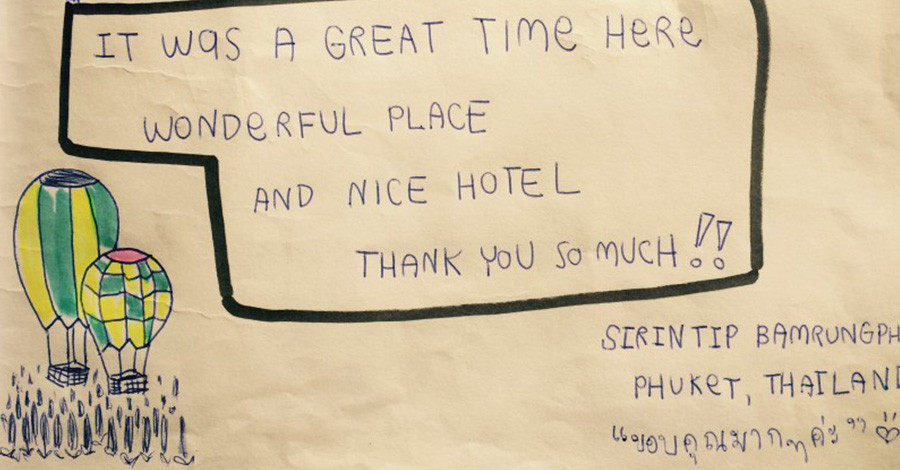 IT WAS A GREAT TIME HERE
WONDERFUL PLACE
AND NICE HOTEL
THANK YOU SO MUCH!!
SIRINTIP BAMRUNGPH
PHUKET, THAILAND
"ขอบคุณมากๆค่ะ"